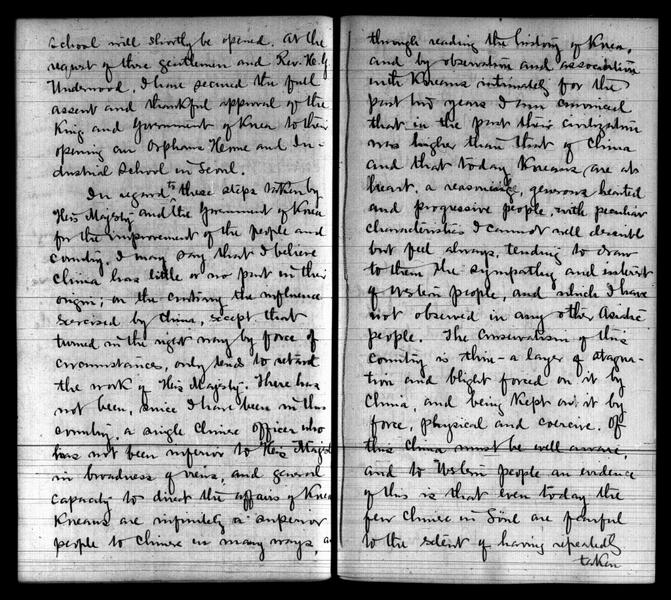 School will shortly be opened. At the
request of three gentlemen and Rev. H. G.
Underwood, I have secured the full
assent and thankful approval of the
King and Government of Korea to their
opening an Orphans Home and In-
dustrial School in Seoul.
In regard to these steps taken by
His Majesty and the Government of Korea
for the improvement of the people and
country, I may say that I believe
China has little or no part in their
origin; on the contrary the influence
exercised by China, except that
turned in the right way by force of
circumstances, only tends to retard
the work of His Majesty. There has
not been, since I have been in this
country, a single Chinese officer who
has not been inferior to His Majesty
in broadness of views, and general
capacity to direct the affairs of Korea
Koreans are infinitely a superior
people to Chinese in many ways, and
through reading the history of Korea,
and by observation and association
with Koreans intimately for the
past two years I am convinced
that in the past their civilization
was higher than that of China
and that today Koreans are at
heart, a reasoning, generous hearted
and progressive people, with peculiar
characteristics I cannot well describe
but feel always, tending to draw
to them the sympathy and interest
of Western people, and which I have
not observed in any other Asiatic
people. The conservatism of this
country is thin - a layer of stagna-
tion and blight forced on it by
China, and being kept on it by
force, physical and coercive. Of
this China must be well aware,
and to Western people an evidence
of this is that even today the
few Chinese in Söul are fearful
to the extent of having repeatedly
taken